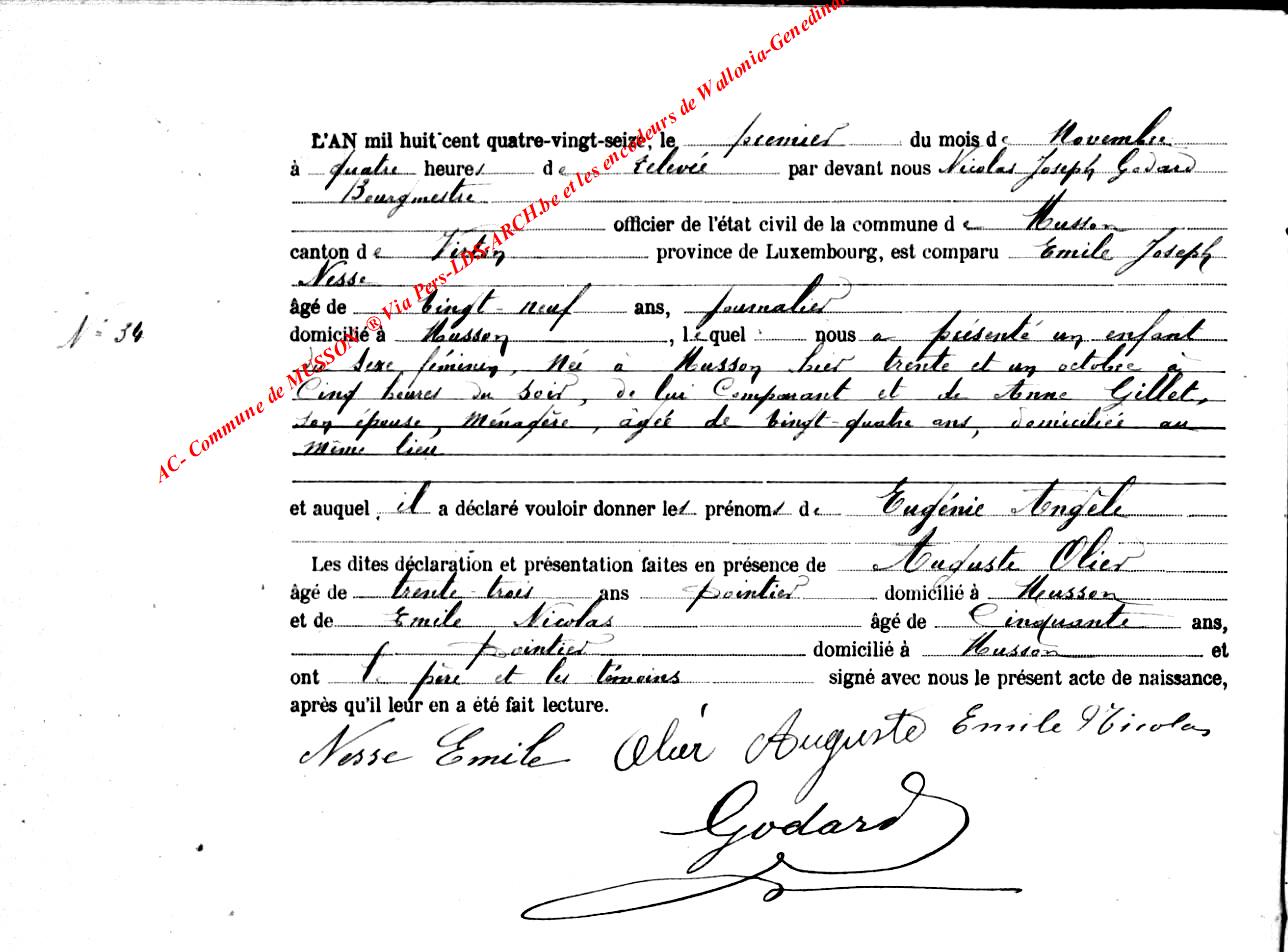 L'AN mil huit cent quatre-vingt-seize, le premier du mois de Novembre
à quatre heures de relevée par devant nous Nicolas Joseph Godard
Bourgmestre
officier de l'état civil de la commune de Musson
canton de Virton province de Luxembourg, est comparu Emile Joseph
Nesse
âgé de vingt-neuf ans, journalier
domicilié à Musson, lequel nous a présenté un enfant
du sexe féminin, née à Musson hier trente et un octobre à
Cinq heures du soir, de lui Comparant et de Anne Gillet,
son épouse, Ménagère, âgée de vingt-quatre ans, domiciliée au
même lieu
N° 34
et auquel il a déclaré vouloir donner les prénoms de Eugénie Angèle
Les dites déclaration et présentation faites en présence de Auguste Olier
âgé de trente-trois ans pointier domicilié à Musson
et de Emile Nicolas âgé de Cinquante ans,
pointier domicilié à Musson et
ont le père et les témoins signé avec nous le présent acte de naissance,
après qu'il leur en a été fait lecture.
Nesse Emile Olier Auguste Emile Nicolas
Godard
AC- Commune de MUSSON ® Via Pers-LDS-ARCH.be et les encodeurs de Wallonia-Genedinan